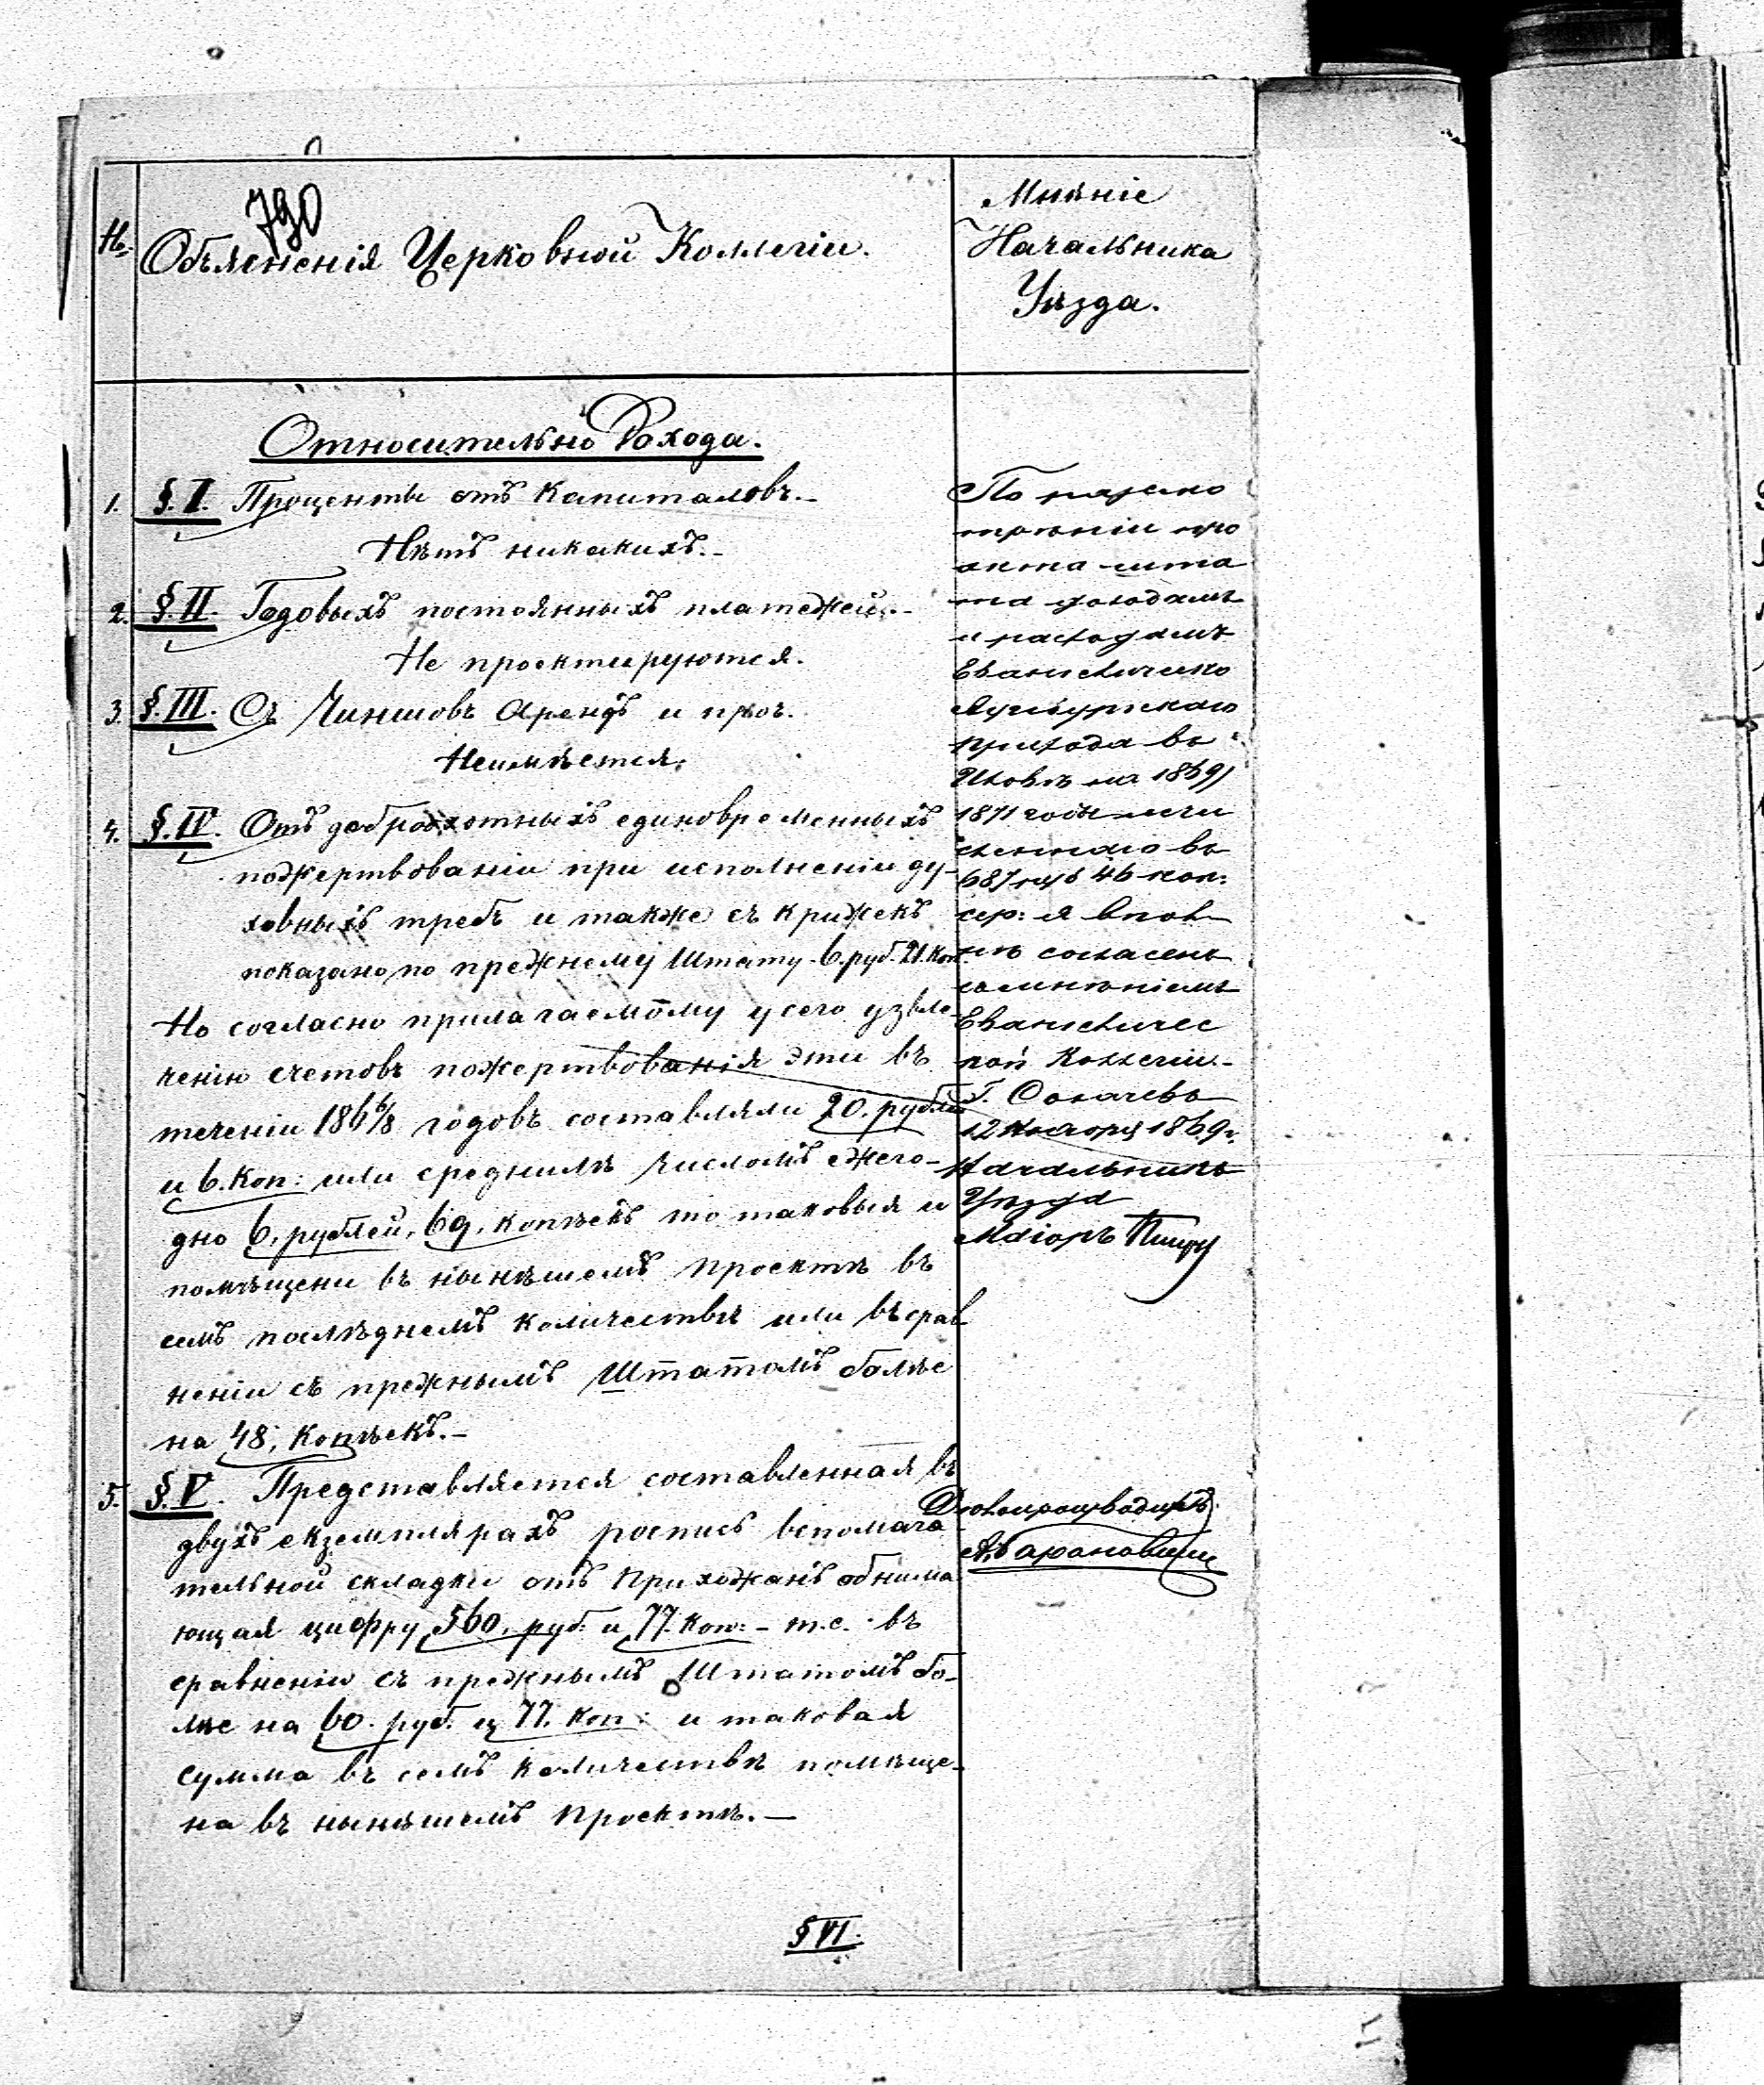 790
№
Объясненія Церковной Коллегіи.
Мнѣніе
Начальника
Уѣзда.
Относительно Дохода.
1. §. I. Проценты отъ Капиталовъ.-
Нѣтъ никакихъ.-
2. §. II. Годовыхъ постоянныхъ платежей.-
Не проектируются.
3. §. III. Съ Чиншовъ Арендъ и проч.
Неимѣется.
4. §. IV. Отъ доброхотныхъ единовременныхъ
пожертвованіи при исполненіи ду-
ховныхъ требъ и также съ крижекъ
показано по прежнему Штату 6. руб. 21. Коп.
Но согласно прилагаемому у сего узвле-
ченію счетовъ пожертвованія эти въ
теченіи 186 6/8 годовъ составляли 20. рублей
и 6. Коп: или среднимъ числомъ ежего-
дно 6, рублей, 69, копѣекъ то таковыя и
помѣщени въ нынѣшемъ Проектѣ въ
семъ послѣднемъ количествѣ или въ срав
неніи съ прежнымъ Штатомъ болѣе
на 48, Копѣекъ.-
5. §. V. Представляется составленная въ
двухъ екземплярахъ роспись вспомога
тельной складки отъ Прихожанъ обнима
ющая цифру 560, руб: и 77. Коп: - т.е. въ
сравненіи съ прежнымъ Штатомъ бо-
лѣе на 60. руб. и 77. Коп: и таковая
сумма въ семъ количествѣ помѣще-
на въ нынѣшемъ Проектѣ.—
§ VI.
По разсмо
трѣніи про
экта шта
та доходамъ
и расходамъ
Евангелическо
Аугсбургскаго
прихода въ
Иловѣ на 1869/
1871 годы исчи
сленнаго въ
687 руб 46 коп:
сер: я впол
нѣ согласенъ
съ мнѣніемъ
Евангеличес
кой Коллегіи.-
Г. Сохачевъ
12 Ноября 1869 г.
Начальникъ
Уѣзда
Маіоръ
Дѣлопроизводитель
А. Барановичъ